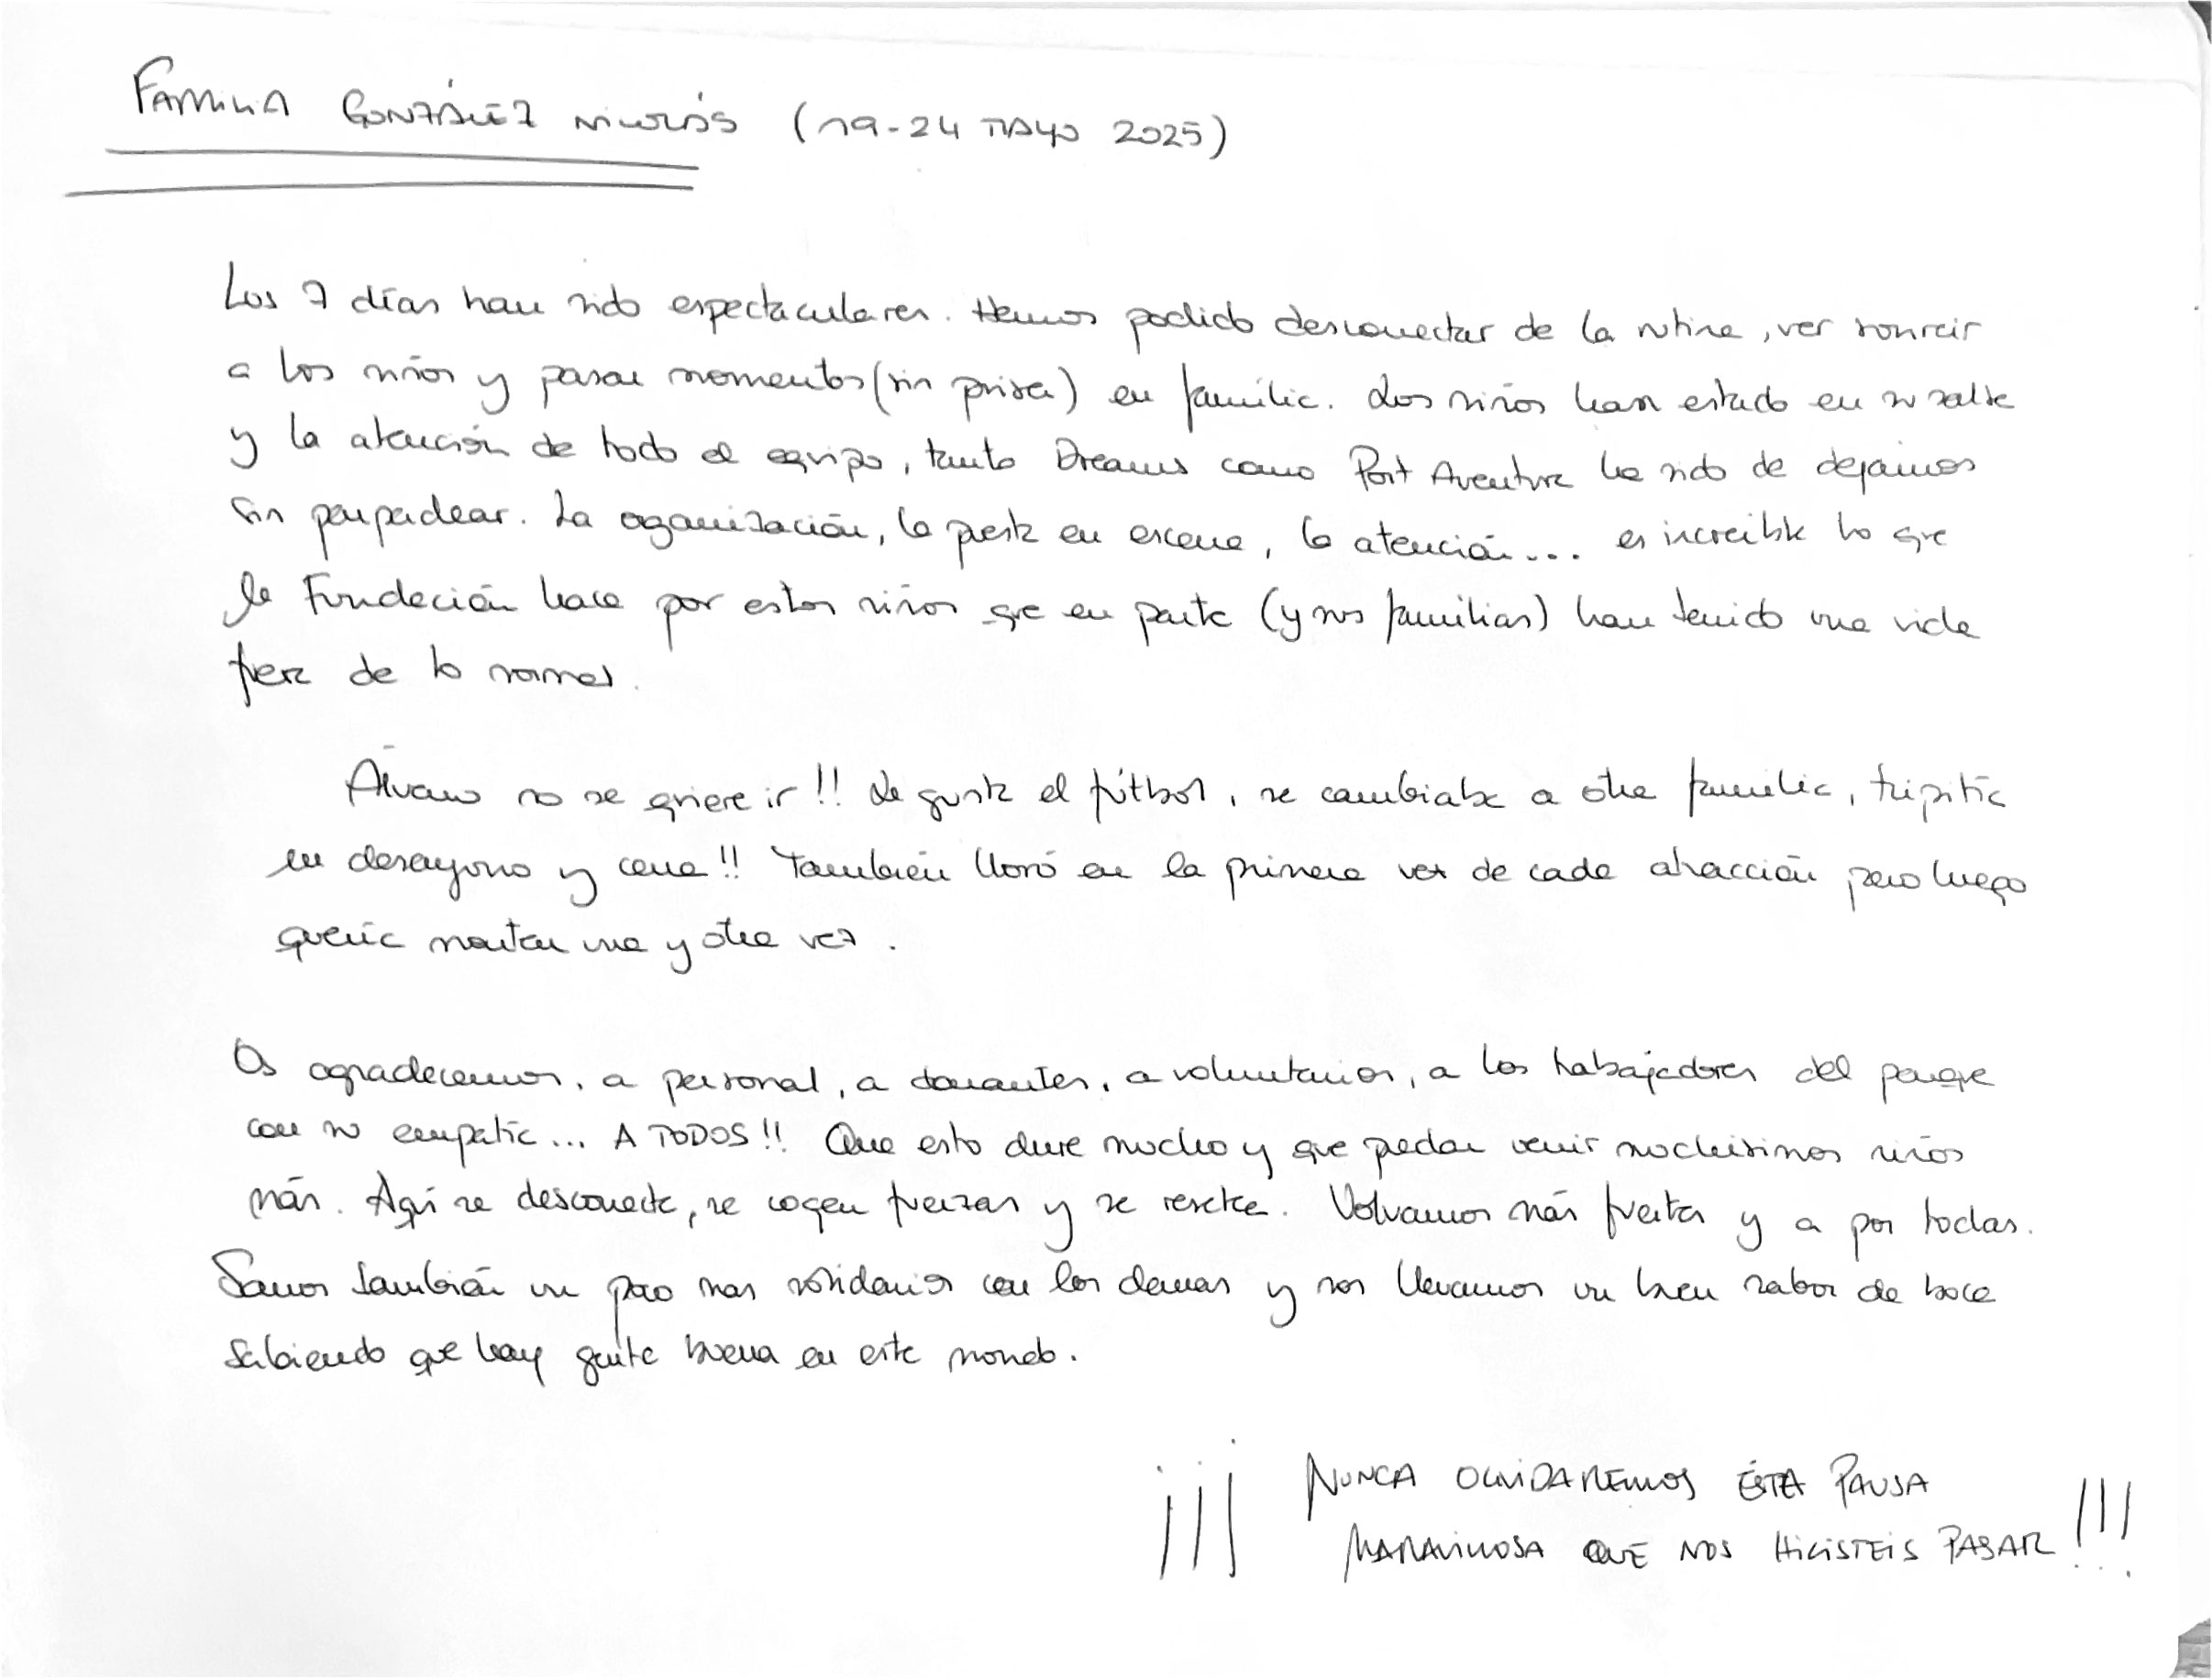 FAMILIA GONZÁLEZ NICOLÁS (19-24 MAYO 2025)
Los 7 días han sido espectaculares. Hemos podido desconectar de la rutina, ver sonreir
a los niños y pasar momentos (sin prisa) en familia. Los niños han estado en su salsa
y la atención de todo el equipo, tanto Dreams como Port Aventura ha sido de dejarnos
sin parpadear. La oganización, la puesta en escena, la atención... es increible lo que
la Fundación hace por estos niños que en parte (y sus familias) han tenido una vida
fuera de lo normal.
Álvaro no se quiere ir!! Le gusta el fútbol, se cambiaba a otra familia,
en desayuno y cena!! También lloró en la primera vez de cada atracción pero luego
quería montar una y otra vez.
Os agradecemos, a personal, a donantes, a voluntarios, a los trabajadores del parque
con su empatía... A TODOS!! Que esto dure mucho y que puedan venir muchisimos niños
más. Aquí se desconecta, se cogen fuerzas y se resetea. Volvamos más fuertes y a por todas.
Somos también un poco mas solidarios con los demas y nos llevamos un buen sabor de boca
sabiendo que hay gente buena en este mundo.
¡¡¡ NUNCA OLVIDAREMOS ÉSTA PAUSA
MARAVILLOSA QUE NOS HICISTEIS PASAR!!!